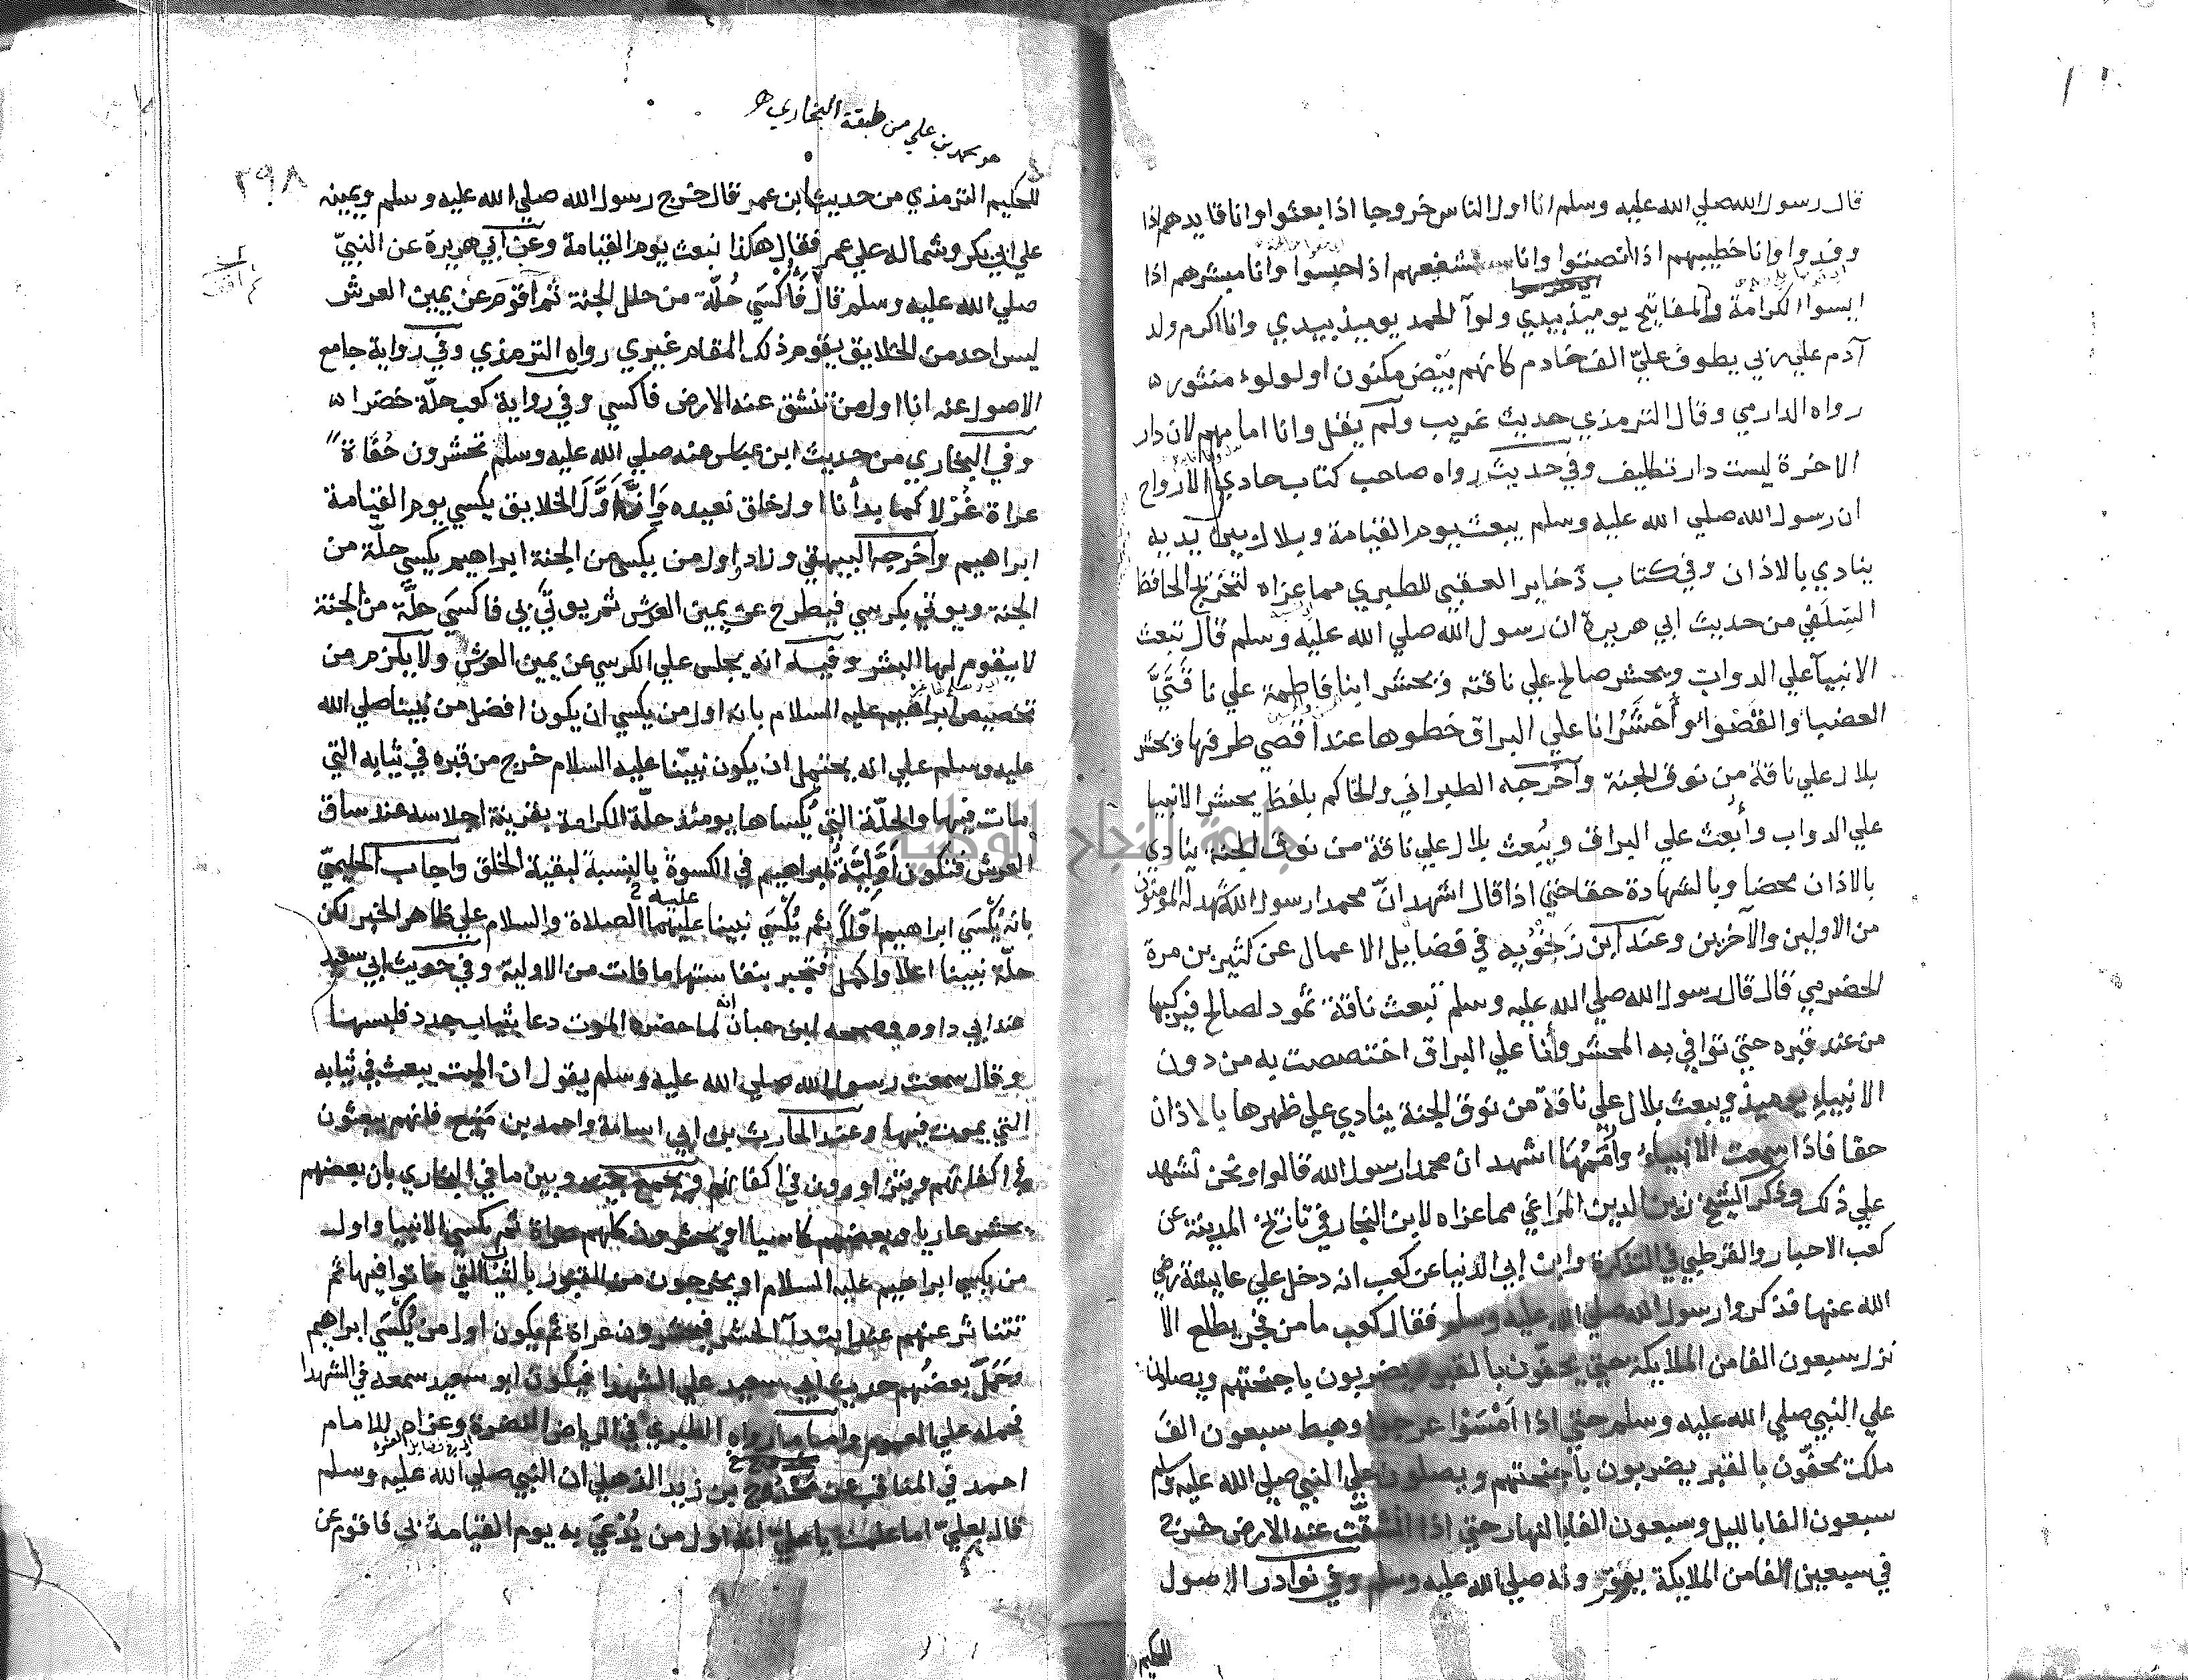 قال رسول الله صلي الله عليه وسلم انا اول الناس خروجا اذا بعثوا وانا قايدهم اذا
وفدوا وانا خطيبهم اذا انصتوا وانا شفيعهم اذا حبسوا وانا مبشرهم اذا
ايسوا الكرامة والمفاتيح يوميذ بيدي ولوآ الحمد يوميذ بيدي وانا اكرم ولد
آدم علي ربي يطوف عليّ الف خادم كانهم بَيْض مكنون او لولوء منثور
رواه الدارمي وقال الترمذي حديث غريب ولم يقل وانا امامهم لان دار
الاخرة ليست دار تكليف وفي حديث رواه صاحب كتاب حادي الارواح
ان رسول الله صلي الله عليه وسلم يبعث يوم القيامة وبلال بين يديه
ينادي بالاذان وفي كتاب ذخاير العقبى للطبري مما عزاه لتخريج الحافظ
السِلَفي من حديث ابي هريرة ان رسول الله صلي الله عليه وسلم قال تبعث
الانبيآ علي الدواب ويحشر صالح علي ناقته ويحشر ابنا فاطمة علي ناقَتَيَّ
العضبا والقَصْوَاءِ وأُحْشَرُ انا علي البراق خطوها عند اقصي طرفها ويحشر
بلال علي ناقة من نوق الجنة وأخرجه الطبراني والحاكم بلفظ يحشر الانبيا
علي الدواب وأُبعث علي البراق ويُبعث بلال علي ناقة من نوق الجنة ينادي
بالاذان محضا وبالشهادة حقا حتي اذا قال اشهد انّ محمدا رسول الله شهد له المومنون
من الاولين والآخرين وعند ابن زَنْجُوْيه في فضايل الاعمال عن كثير بن مرة
الحضرمي قال قال رسول الله صلي الله عليه وسلم تبعث ناقة ثمود لصالح فيركبها
من عند قبره حتي توافي به المحشر وأنا علي البراق اختصصت به من دون
الانبياء يوميذ ويبعث بلال علي ناقة من نوق الجنة ينادي علي ظهرها بالاذان
حقا فاذا سمعت الانبياءُ وأُمَمُهَا اشهد ان محمدا رسول الله قالوا ونحن نشهد
علي ذلك وذكر الشيخ زين الدين المراغي مما عزاه لابن النجار في تاريخ المدينة عن
كعب الاحبار والقرطبي في التذكرة وابن ابي الدنيا عن كعب انه دخل علي عايشة رضي
الله عنها فذكروا رسول الله صلي الله عليه وسلم فقال كعب ما من فجر يطلع الا
نزل سبعون الفا من الملايكة حتي يحفّون بالقبر يضربون باجنحتهم ويصلون
علي النبي صلي الله عليه وسلم حتي اذا اَمْسَوْا عرجوا وهبط سبعون الفَ
ملك يحفّون بالقبر يضربون باجنحتهم ويصلون علي النبي صلي الله عليه وسلم
سبعون الفا بالليل وسبعون الفا بالنهار حتي اذا انشقّت عنه الارض خرج
في سبعين الفا من الملايكة يوقرونه صلي الله عليه وسلم وفي نوادر الاصول
الحكيم
هو محمد بن علي من طبقة البخاري
٢٩٨
للحكيم الترمذي من حديث ابن عمر قال خرج رسول الله صلي الله عليه وسلم ويمينه
علي ابي بكر وشماله علي عمر فقال هكذا نبعث يوم القيامة وعن ابي هريرة عن النبيّ
صلي الله عليه وسلم قال فَأُكْسَي حُلّة من حلل الجنة ثم اقوم عن يمين العرش
ليس احد من الخلايق يقوم ذلك المقام غيري رواه الترمذي وفي رواية جامع
الاصول عنه انا اول من تنشق عنه الارض فاكسي وفي رواية كعب حلّة خضرا
وفي البخاري من حديث ابن عباس عنه صلي الله عليه وسلم تحشرون حُفَاة
عراة غُرْلا كما بدأنا اول خلق نعيده وَإنَّ أَوَّلَ الخلايق يكسي يوم القيامة
ابراهيم وأخرجه البيهقي وزاد واول من يكسي من الجنة ابراهيم يكسي حلّة من
الجنة ويوتي بكرسي فيطرح عن يمين العرش ثم يوتَي بي فاكسَي حلَّة من الجنة
لا يقوم لها البشر وفيه انه يجلس علي الكرسي عن يمين العرش ولا يلزم من
تخصيص ابراهيم عليه السلام بانه اول من يكسي ان يكون افضل من نبينا صلي الله
عليه وسلم علي انه يحتمل ان يكون نبيّنا عليه السلام خرج من قبره في ثيابه التي
مات فيها والحلّة التي يُكساها يومئذ حلّة الكرامة بقرينة اجلاسه عند ساق
العرش فتكون أوَّلِيَّةُ ابراهيم في الكسوة بالنسبة لبقية الخلق واجاب الحليميّ
بانه يُكْسَي ابراهيم أوّلاً ثم يُكْسَي نبينا عليهما الصلاة والسلام علي ظاهر الخبر لكن
حلّة نبينا اعلا واكمل فتجبر بنفاستها ما فات من الاولية وفي حديث ابي سعيد
عند ابي داود وصححه ابن حبان انه لما حضره الموت دعا بثياب جدد فلبسها
وقال سمعت رسول الله صلي الله عليه وسلم يقول ان الميت يبعث في ثيابه
التي يموت فيها وعند الحارث بن ابي اسامة واحمد بن مَنِيع فانهم يبعثون
في اكفانهم ويتزاورون في اكفانهم ويجمع بينه وبين ما في البخاري بان بعضهم
يحشر عاريا وبعضهم كاسيا او يحشرون كلهم عراة ثم يكسي الانبيا واول
من يكسي ابراهيم عليه السلام او يخرجون من القبور بالثياب التي ماتوا فيها ثم
تتناثر عنهم عند ابتدآ الحشر فيحشرون عراة ثم يكون اول من يُكْسَي ابراهيم
وحَمَلَ بعضُهم حديث ابي سعيد علي الشهدا فيكون ابو سعيد سمعه في الشهدا
فحمله علي العموم واما ما رواه الطبري في الرياض النضرة وعزاه للامام
احمد في المناقب عن مَحْدُوج بن زيد الذهلي ان النبي صلي الله عليه وسلم
قال لعليّ اما علمت يا عليّ انه اول من يُدْعَي به يوم القيامة بي فاقوم عن
جامعة النجاح الوطنية